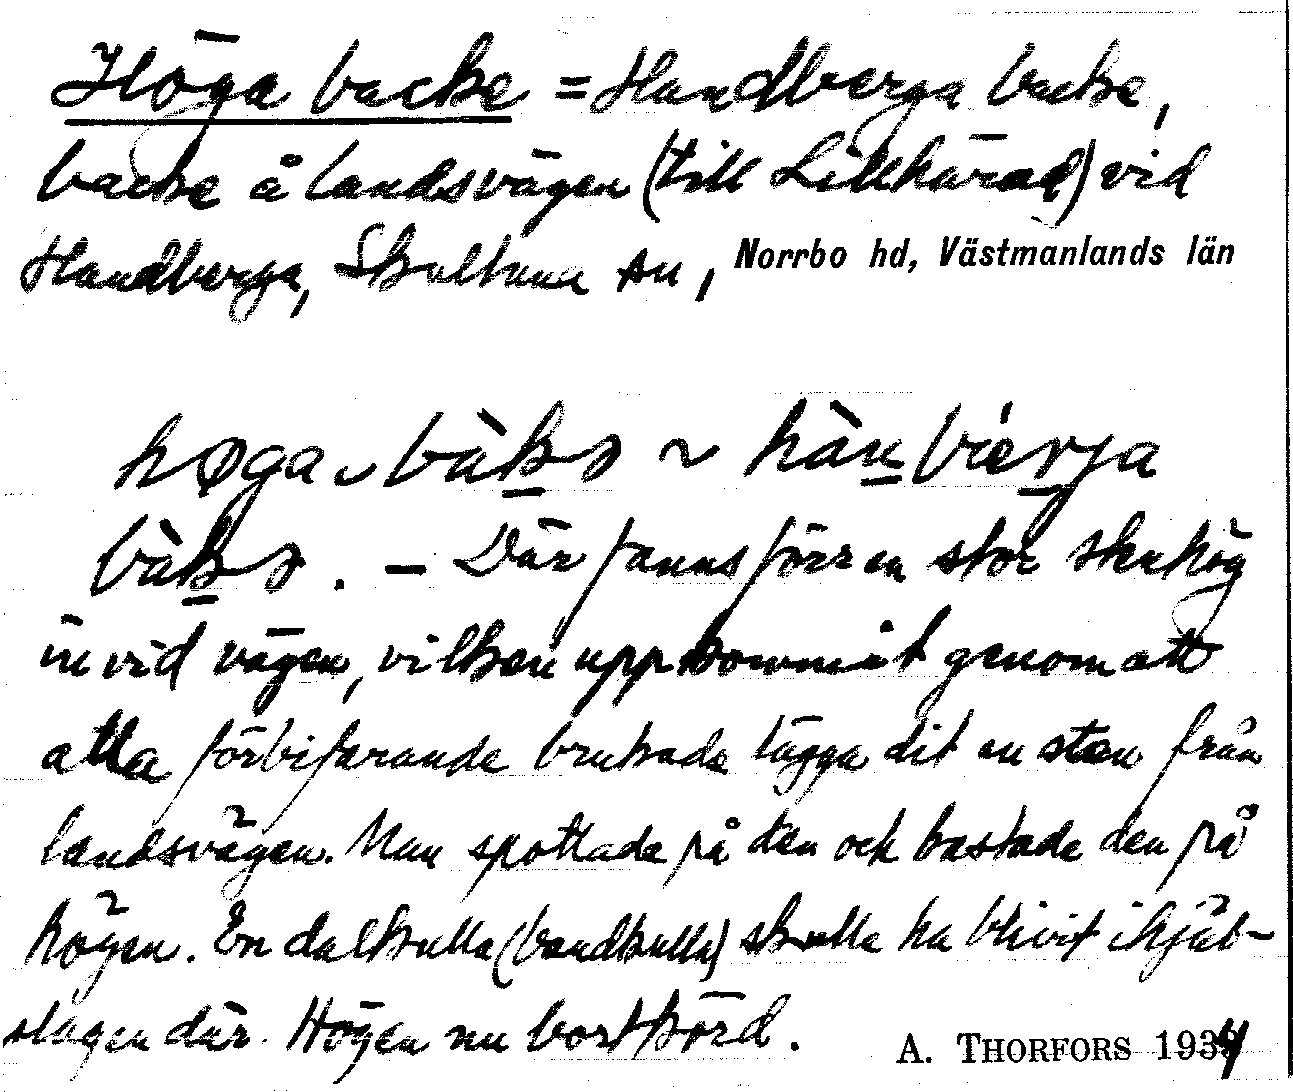 Höga backe = Handberga backe,
backe å landsvägen (till Lillhärad) vid
Handberga, Skultuna sn, Norrbo hd, Västmanlands län
høga bàkə ~ hàn biærja
bàkə. – Där fanns förr en stor stenhög
invid vägen, vilken uppkommit genom att
alla förbifarande brukade lägga dit en sten från
landsvägen. Man spottade på den och kastade den på
högen. En dalkulla (bandkulla) skulle ha blivit ihjäl-
slagen där. Högen nu bortkörd.
A. THORFORS 1934